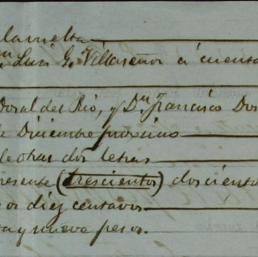 la vuelta
Dn. Luis G. Villaseñor a cuenta
Doval del Rio, y Dn. Francisco Dov
e Diciembre próximo
de otras dos letras
presente (trescientos) doscient
os diez centavos
ta y nueve pesos.